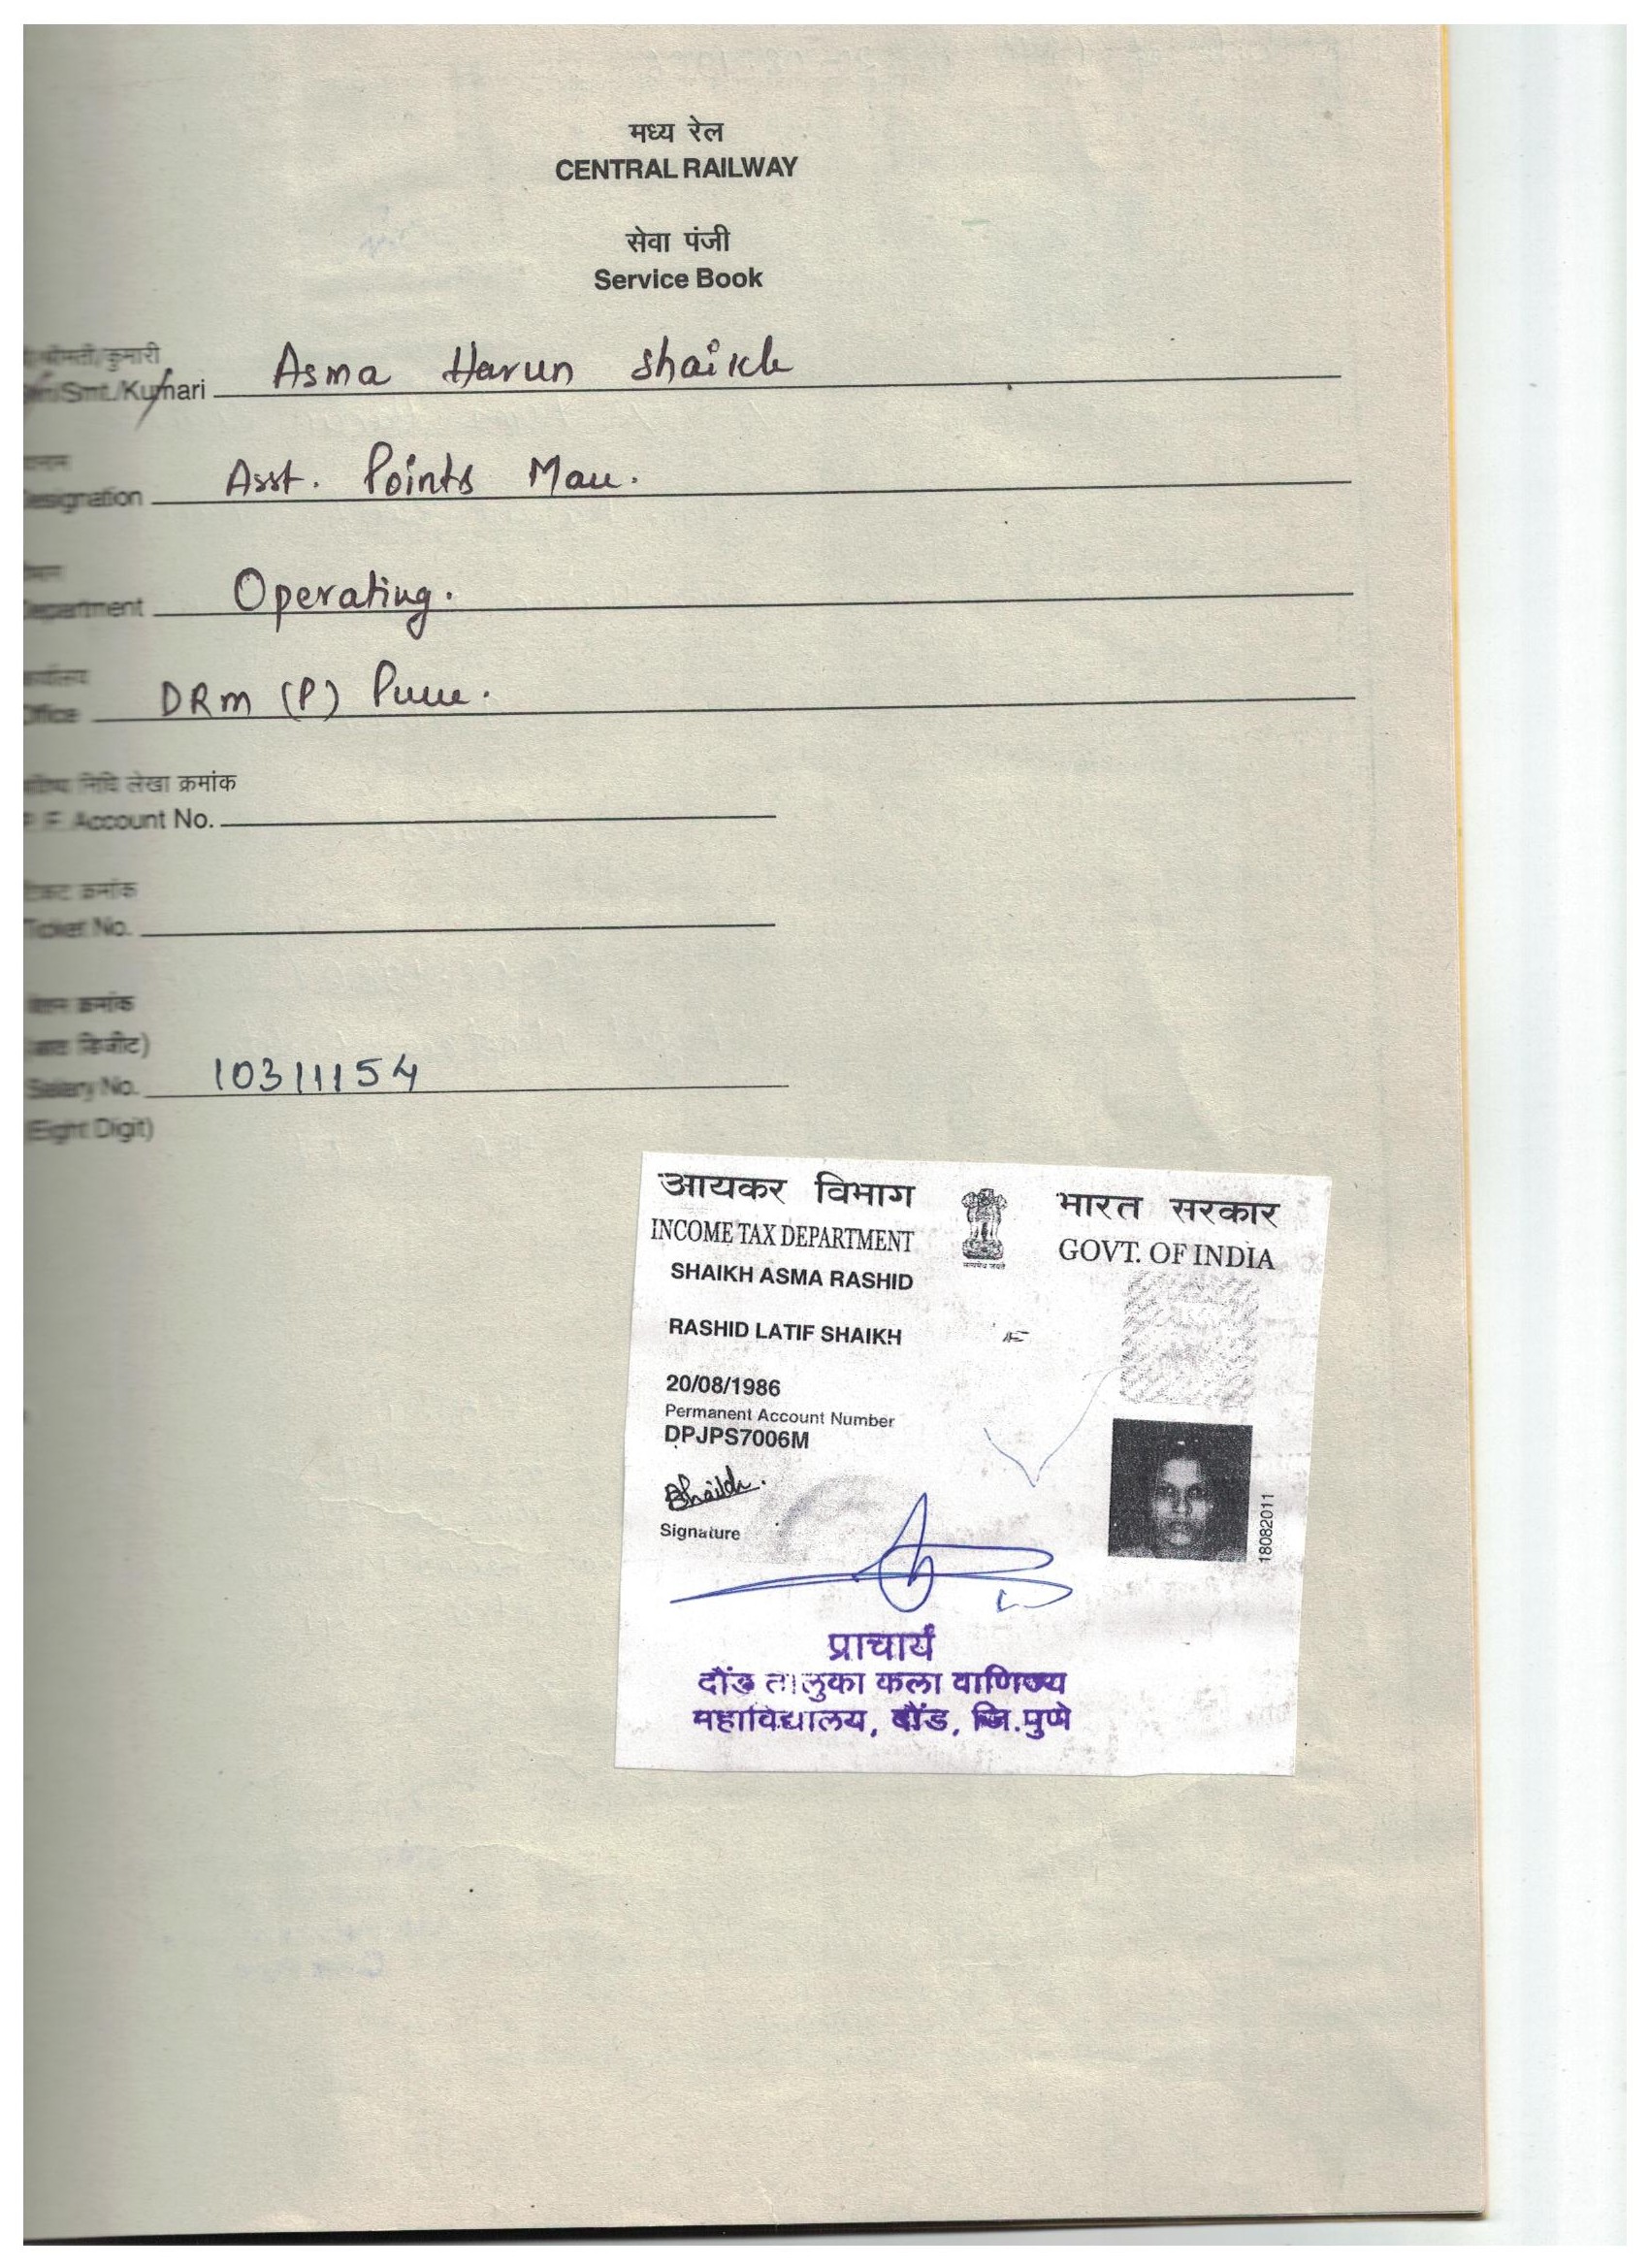 मध्य रेल
CENTRAL RAILWAY
सेवा पंजी
Service Book
श्रीमती/कुमारी
/Smt./Kumari Asma Harun Shaikh
Designation Asst. Points Man.
Department Operating.
Office DRM (P) Pune.
निधि लेखा क्रमांक
P. F. Account No.
क्रमांक
Ticket No.
क्रमांक
डिजीट)
Salary No. 10311154
(Eight Digit)
आयकर विभाग भारत सरकार
INCOME TAX DEPARTMENT GOVT. OF INDIA
SHAIKH ASMA RASHID
RASHID LATIF SHAIKH
20/08/1986
Permanent Account Number
DPJPS7006M
Shaikh.
Signature
18082011
प्राचार्य
दौंड तालुका कला वाणिज्य
महाविद्यालय, दौंड, जि.पुणे